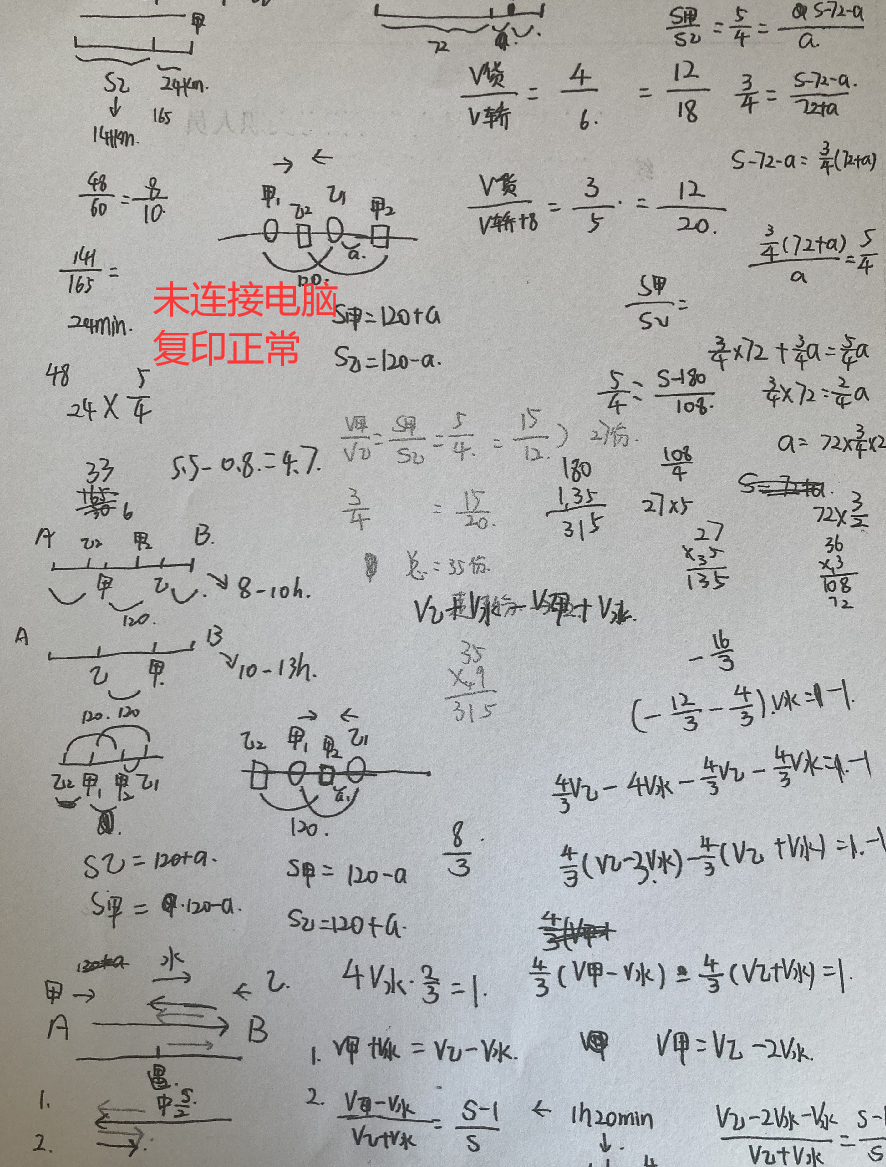 甲
72
a
S甲/S乙 = 5/4 = S-72-a/a
S乙 24km.
↓ 165
14km.
V货/V轿 = 4/6. = 12/18
3/4 = S-72-a./72+a
S-72-a = 3/4(72+a)
48/60 = 8/10.
→ ←
甲1 乙2 乙1 甲2
a.
120.
V货/V轿+8 = 3/5. = 12/20.
3/4(72+a)/a = 5/4
141/165 =
24min.
未连接电脑
复印正常
S甲=120+a
S乙=120-a.
S甲/S乙=
3/4×72+3/4a=5/4a
48
24×5/4
5/4=S-180/108.
3/4×72=2/4a
V甲/V乙=S甲/S乙=5/4. =15/12. } 27份.
a=72×3/4×2
33
5.5-0.8.=4.7.
180
135
315
108/4
27×5
72×3/2
6
3/4 =15/20.
27
×35
135
36
×3
108
72
A 乙2 甲2 B.
甲 乙
120.
→8-10h.
总=35份.
V乙-V水-V甲+V水.
A B
乙 甲
→10-13h.
35
×9
315
-16/3
(-12/3-4/3)V水=-1.
120. 120
乙2 甲1 甲2 乙1
→ ←
乙2 甲1 甲2 乙1
a.
120.
4/3V乙-4V水-4/3V乙-4/3V水=-1
8/3
S乙=120+a.
S甲=120-a.
S甲=120-a
S乙=120+a.
4/3(V乙-3V水)-4/3(V乙+V水)=-1
水
甲→ ←乙.
A B
4V水·2/3=1.
4/3(V甲-V水)=4/3(V乙+V水)=1.
1. V甲+V水=V乙-V水.
V甲=V乙-2V水.
中S/2
1.
2.
2. V甲-V水/V乙+V水=S-1/S
← 1h20min
↓
V乙-2V水-V水/V乙+V水=S-1/S